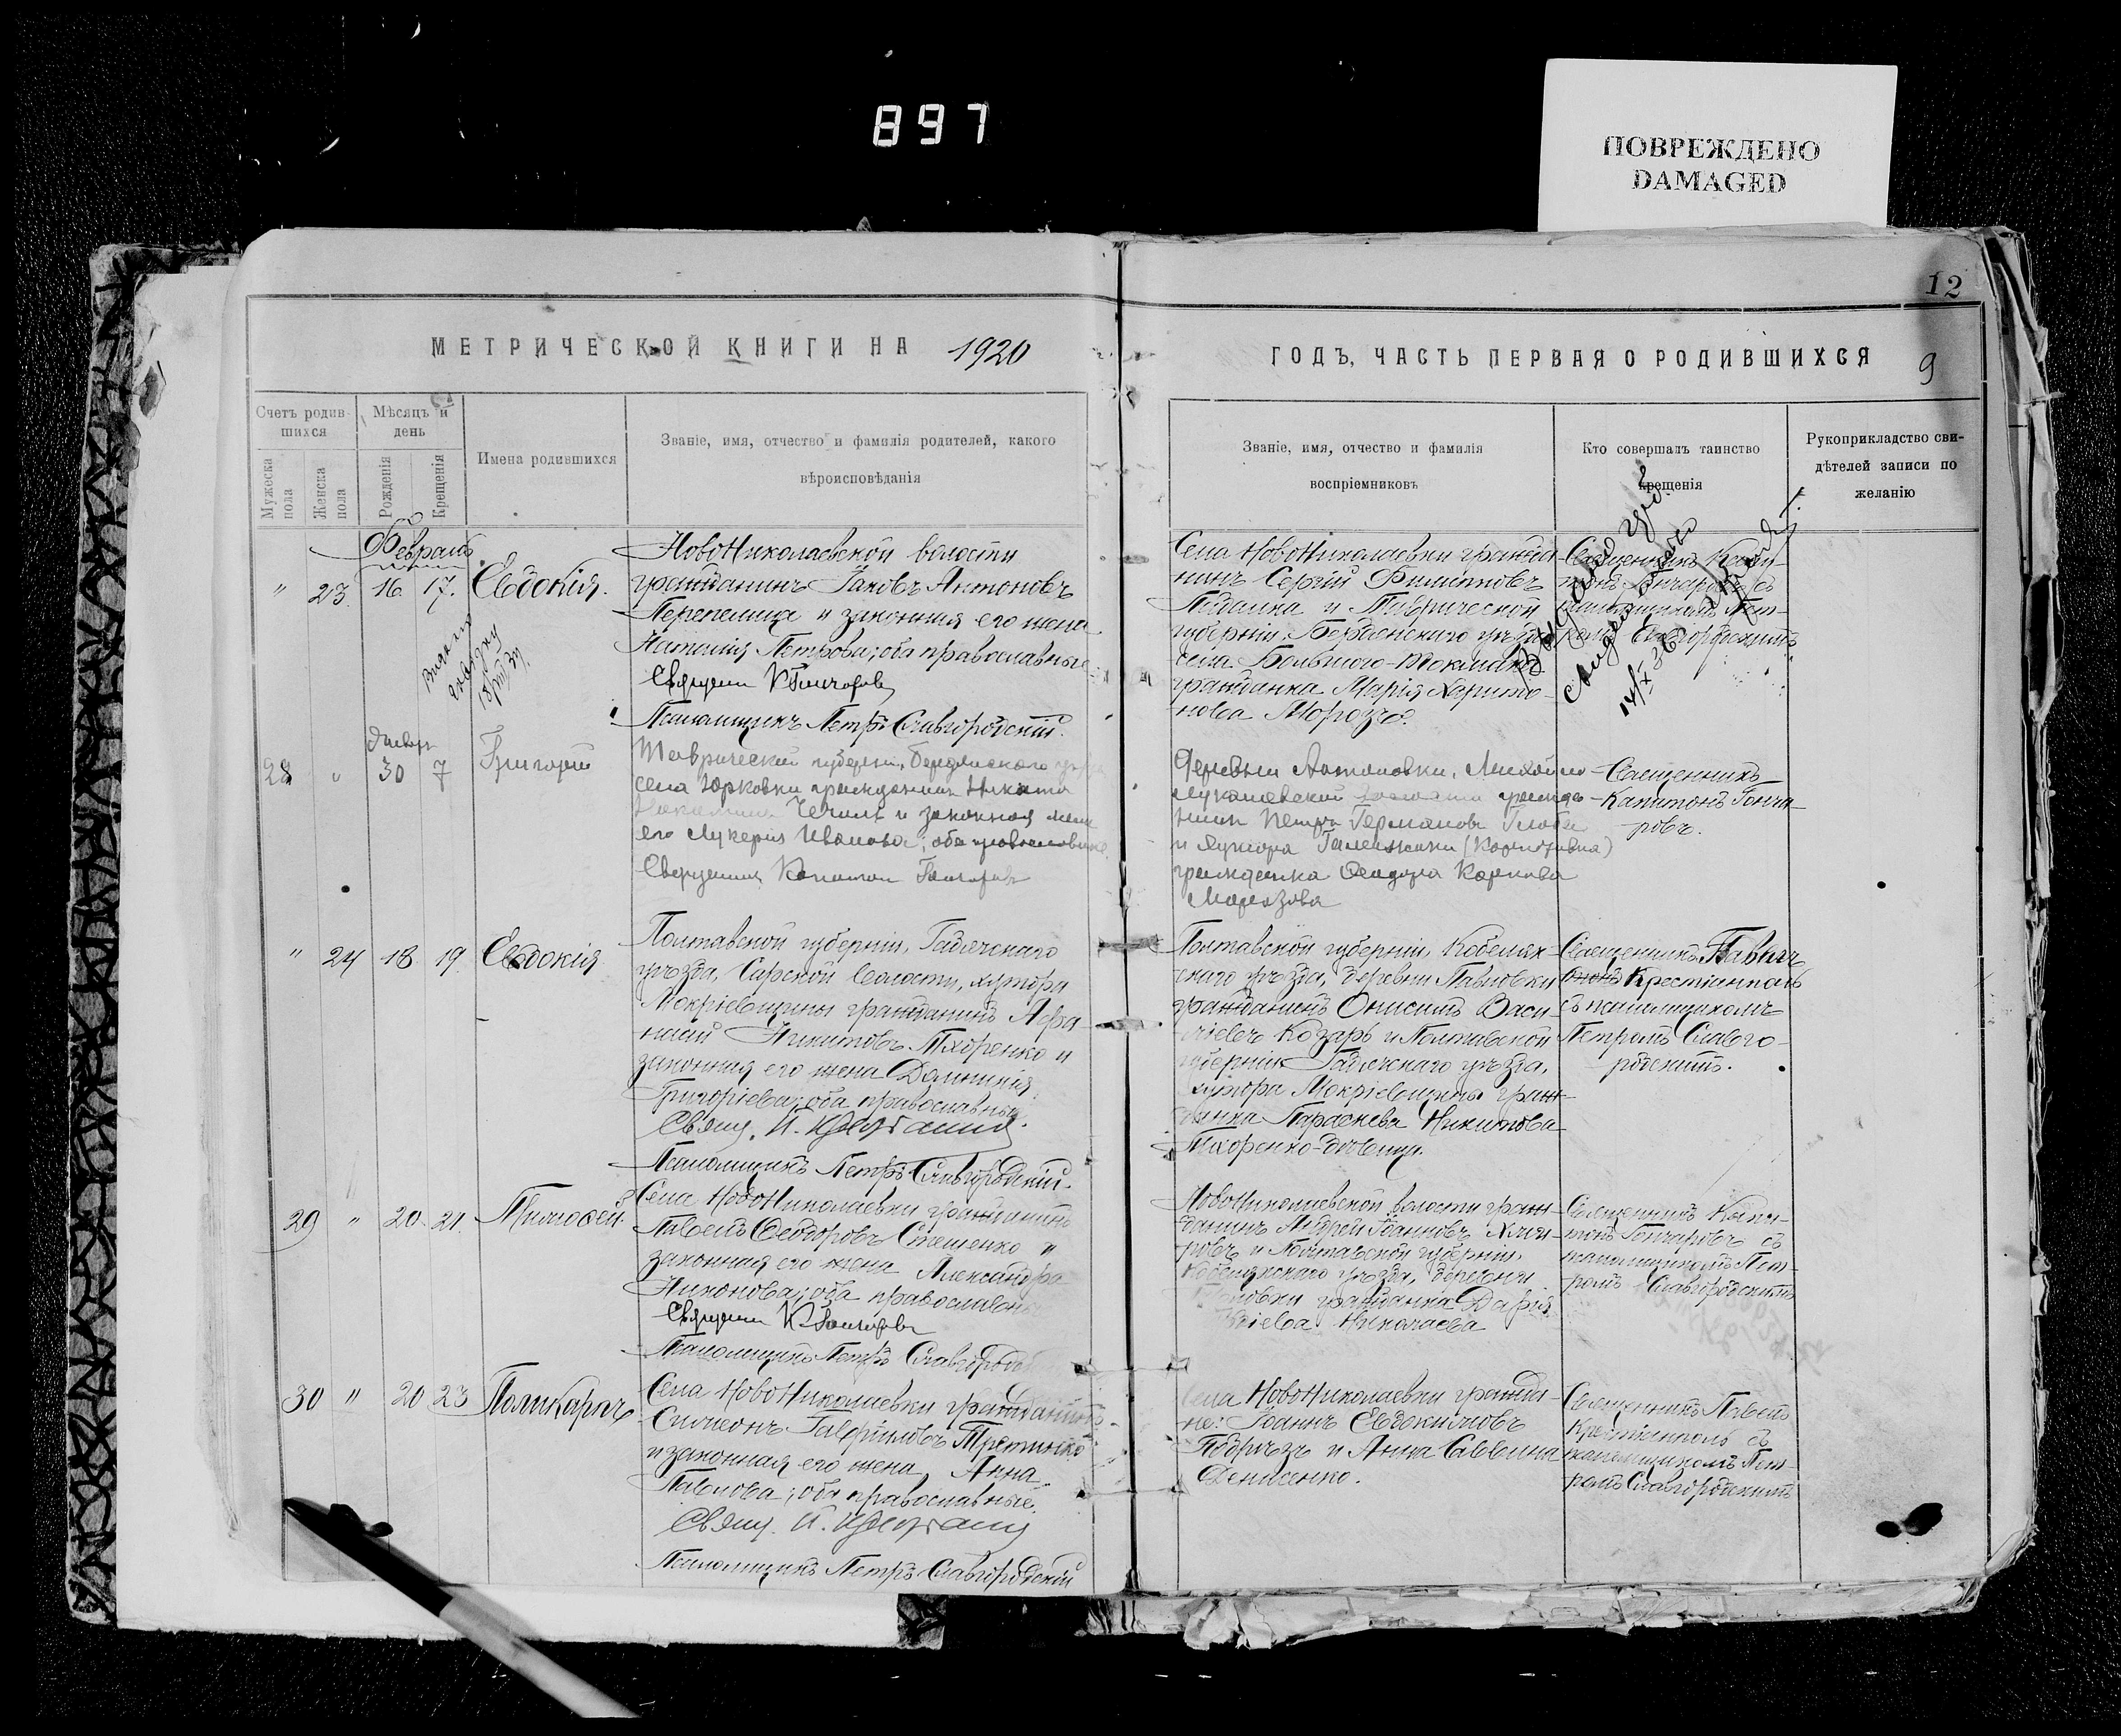 897
ПОВРЕЖДЕНО
DAMAGED
12
МЕТРИЧЕСКОЙ КНИГИ НА 1920
ГОДЪ, ЧАСТЬ ПЕРВАЯ О РОДИВШИХСЯ
9
Счетъ родив-
шихся
Мужеска пола
Женска пола
Мѣсяцъ и
день
Рожденія
Крещенія
Имена родившихся
Званіе, имя, отчество и фамилія родителей, какого
вѣроисповѣданія
Званіе, имя, отчество и фамилія
воспріемниковъ
Кто совершалъ таинство
крещенія
Рукоприкладство сви-
дѣтелей записи по
желанію
Февраль
" 23. 16. 17. Евдокія.
НовоНиколаевской волости
гражданинъ Іаковъ Антоновъ
Перепелица и законная его жена
Наталія Петрова; оба православные
Священ К Гончаровъ
Псаломщикъ Петръ Славгородскій.
Села НовоНиколаевки гражда-
нинъ Сергій Филиповъ
и Таврической
губерніи, Бердянскаго уѣзда
села Большого-Токмака
гражданка Марія Харито-
нова Морозъ.
Священникъ Капи-
тонъ Гончаровъ съ
псаломщикомъ Пет-
ромъ Славгородскимъ
Январь
28 " 30 7 Григорій
Таврической губерніи, Бердянского уѣзда
села Юрковки гражданинъ Никита
и законная жена
его Лукерия Иванова; оба православные
Священникъ Капитон Гончаровъ
Деревни Антоновки, Михайло-
Лукашевской волости гражда-
нинъ Петръ Германовъ
и хутора
гражданка Карпова
Морозова
Священникъ
Капитонъ Гонча-
ровъ.
" 24 18 19. Евдокія
Полтавской губерніи, Гадячскаго
уѣзда, Сарской волости, хутора
Мокріевщины гражданинъ Афа-
насій Никитовъ Тхоренко и
законная его жена Домникія
Григоріева; оба православные.
Свящ. П.
Псаломщикъ Петръ Славгородскій.
Полтавской губерніи, Кобеляк-
скаго уѣзда, деревни Павловки
гражданинъ Онисимъ Васи-
ліевъ Козарь и Полтавской
губерніи Гадячскаго уѣзда,
хутора Мокріевщины граж-
данка Параскева Никитова
Тхоренко-дѣвица.
Священникъ Павелъ
Крестіанполь
съ псаломщикомъ
Петромъ Славго-
родскимъ.
29 " 20. 21. Тимофей.
Села НовоНиколаевки гражданинъ
Павелъ Феодоровъ Стеценко и
законная его жена Александра
Никонова; оба православные
Священ К Гончаровъ
Псаломщикъ Петръ Славгородскій
НовоНиколаевской волости граж-
данинъ Андрей Іоанновъ
и Полтавской губерніи,
Кобелякскаго уѣзда, деревни
гражданка Дарія
Николаева
Священникъ Капи-
тонъ Гончаровъ съ
псаломщикомъ Пет-
ромъ Славгородскимъ
30 " 20 23 Поликарпъ
Села НовоНиколаевки гражданинъ
Симеонъ Гавріиловъ
и законная его жена, Анна
Павлова; оба православные.
Свящ. П.
Псаломщикъ Петръ Славгородскій
Села НовоНиколаевки гражда-
не: Іоаннъ Евдокимовъ
Подрѣзъ и Анна Саввина
Денисенко.
Священникъ Павелъ
Крестіанполь съ
псаломщикомъ Пет-
ромъ Славгородскимъ